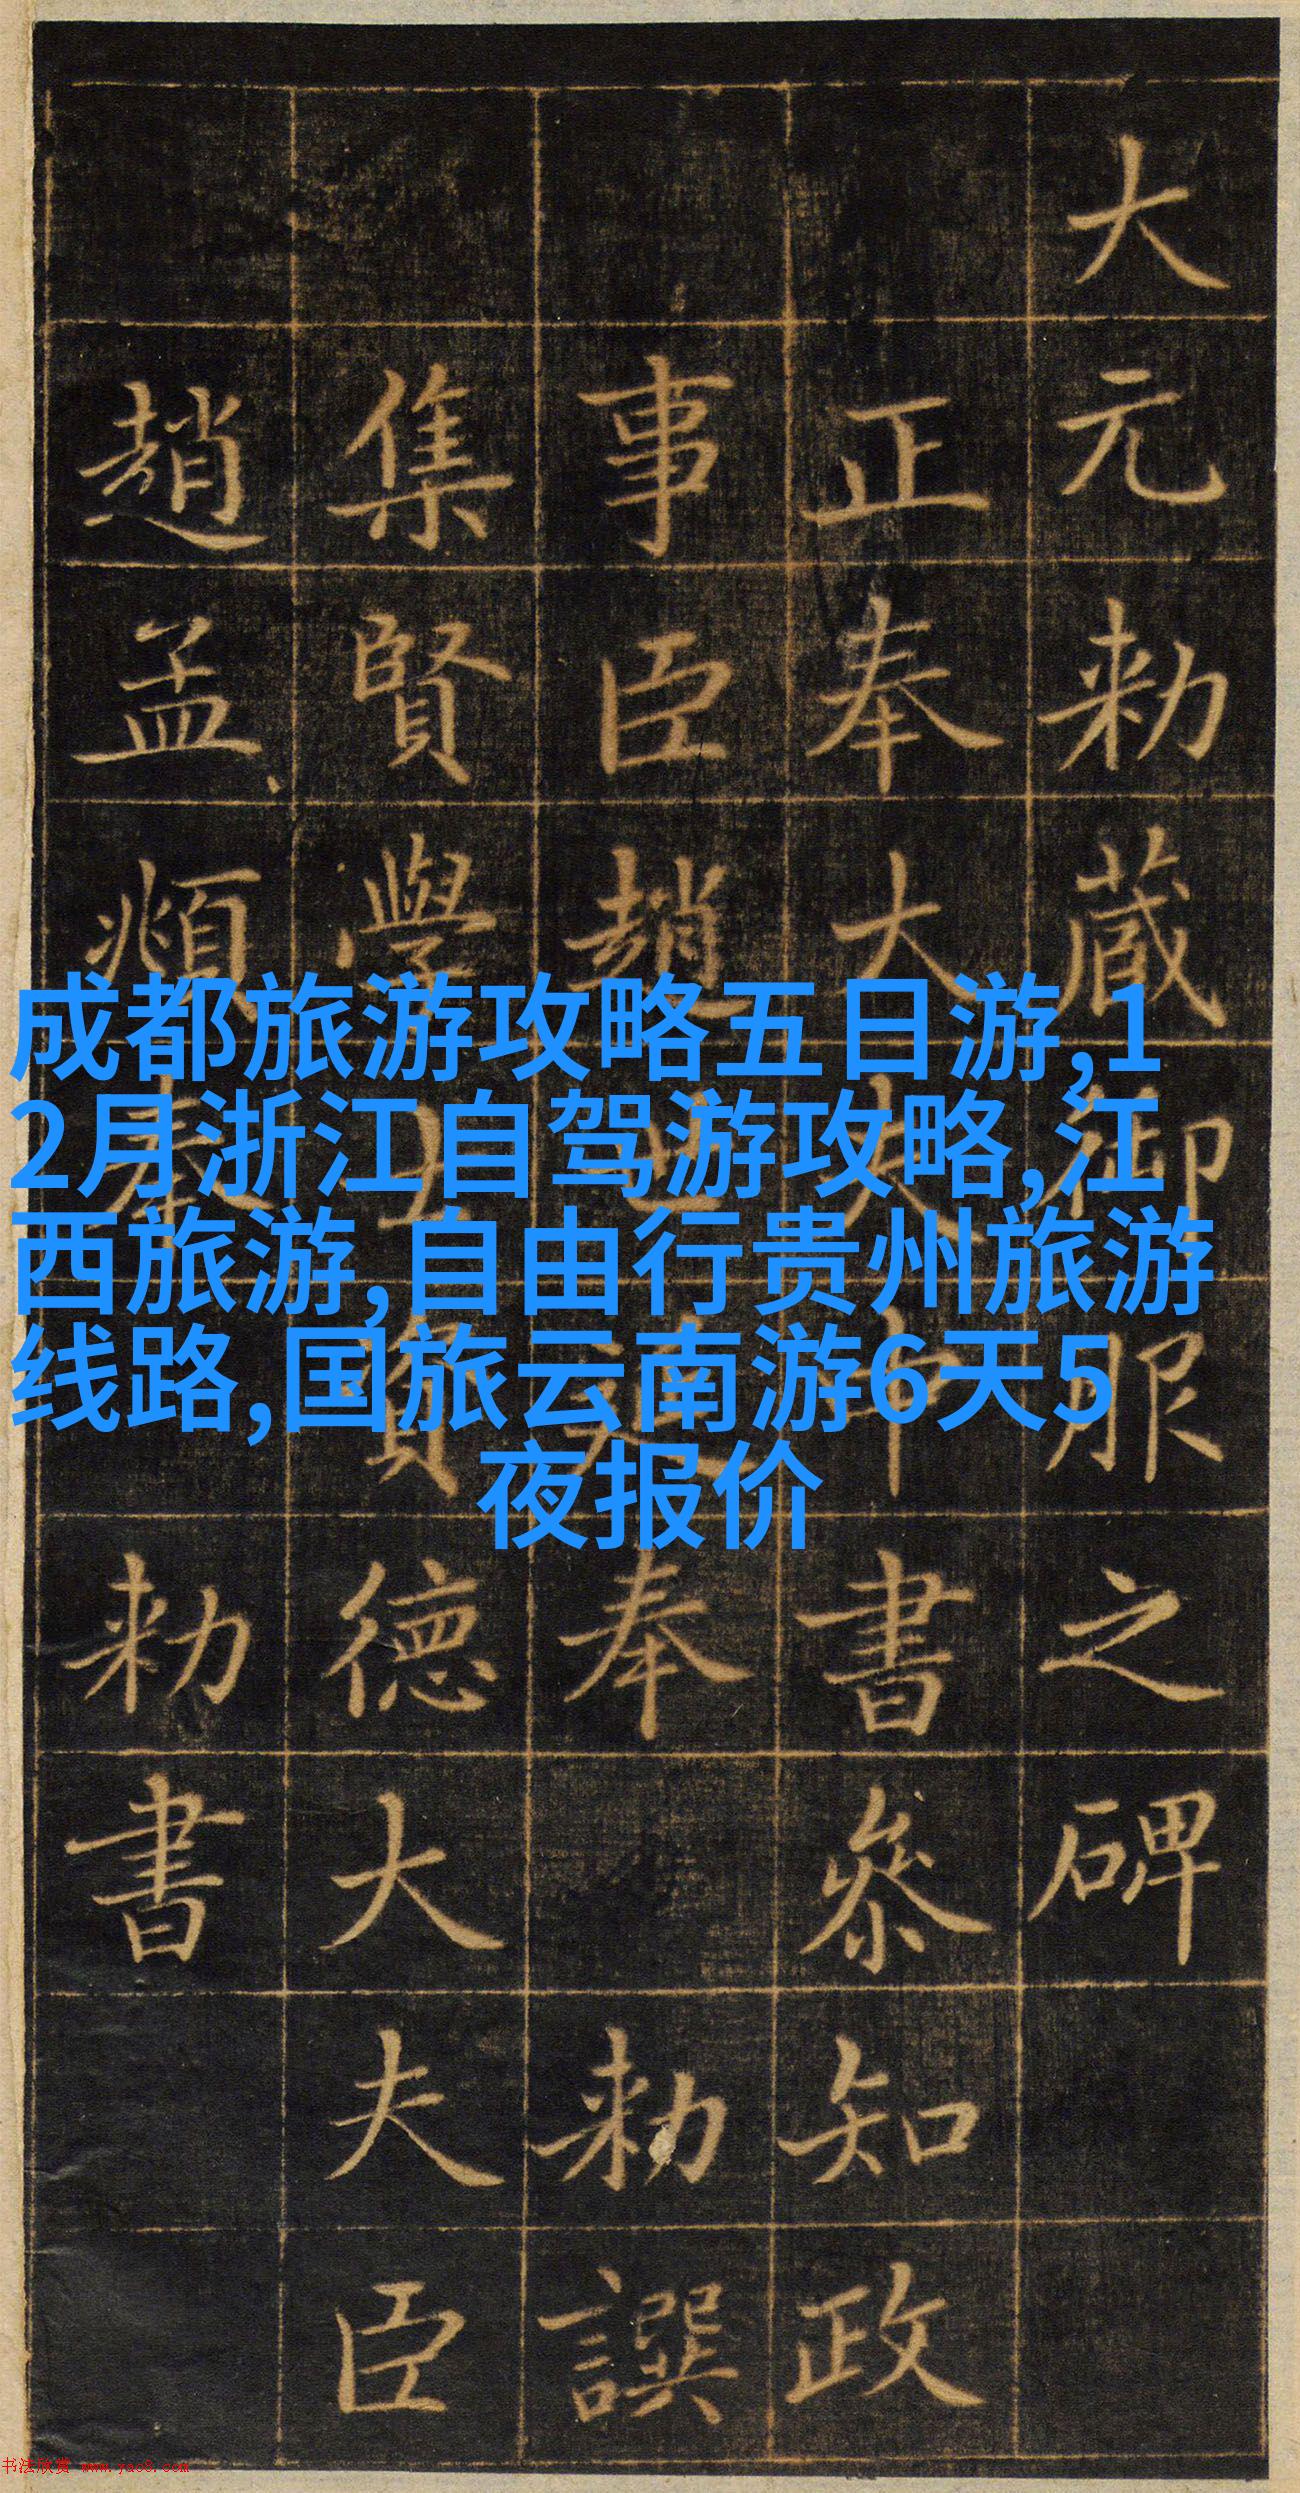 大元勅藏御服之碑
正奉大夫中書叅知政
事臣趙世延奉 勅譔
集賢學士資德大夫臣
趙孟頫奉 勅書
成都旅游攻略五日游,1
2月浙江自驾游攻略,江
西旅游,自由行贵州旅游
线路,国旅云南游6天5
夜报价
书法欣赏 www.yac8.com